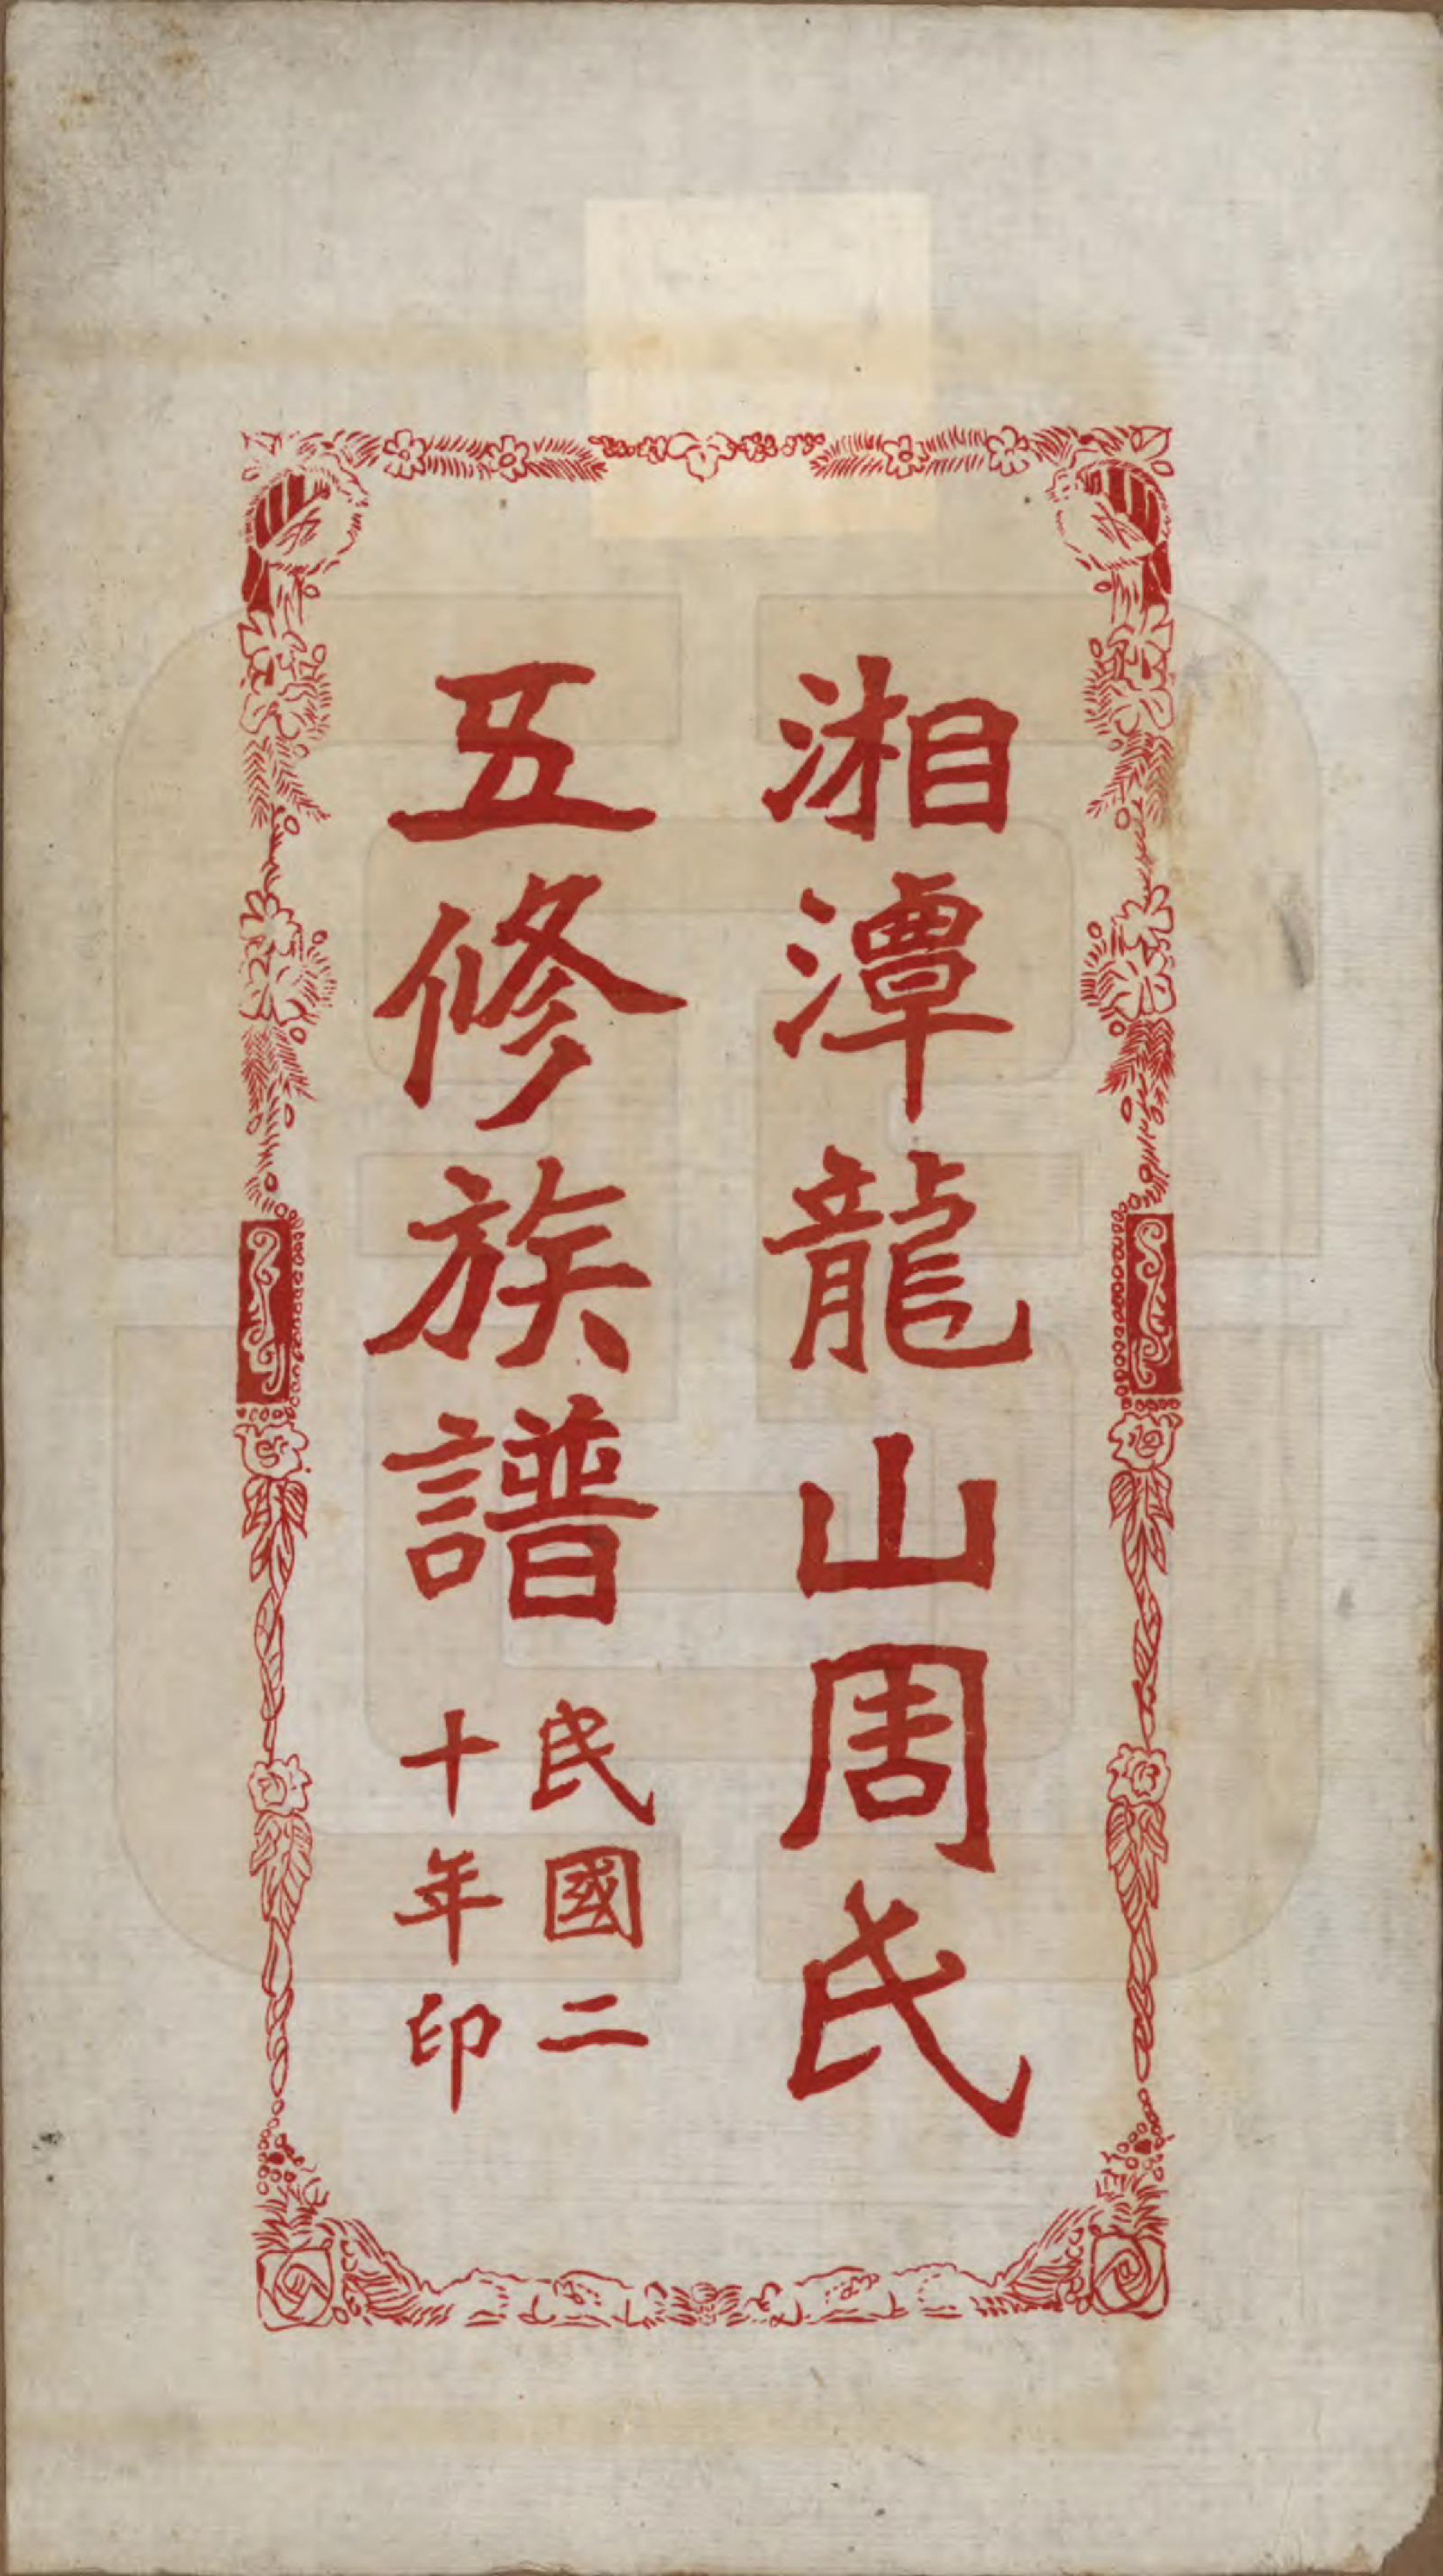 湘潭龍山周氏
五修族譜
民國二
十年印